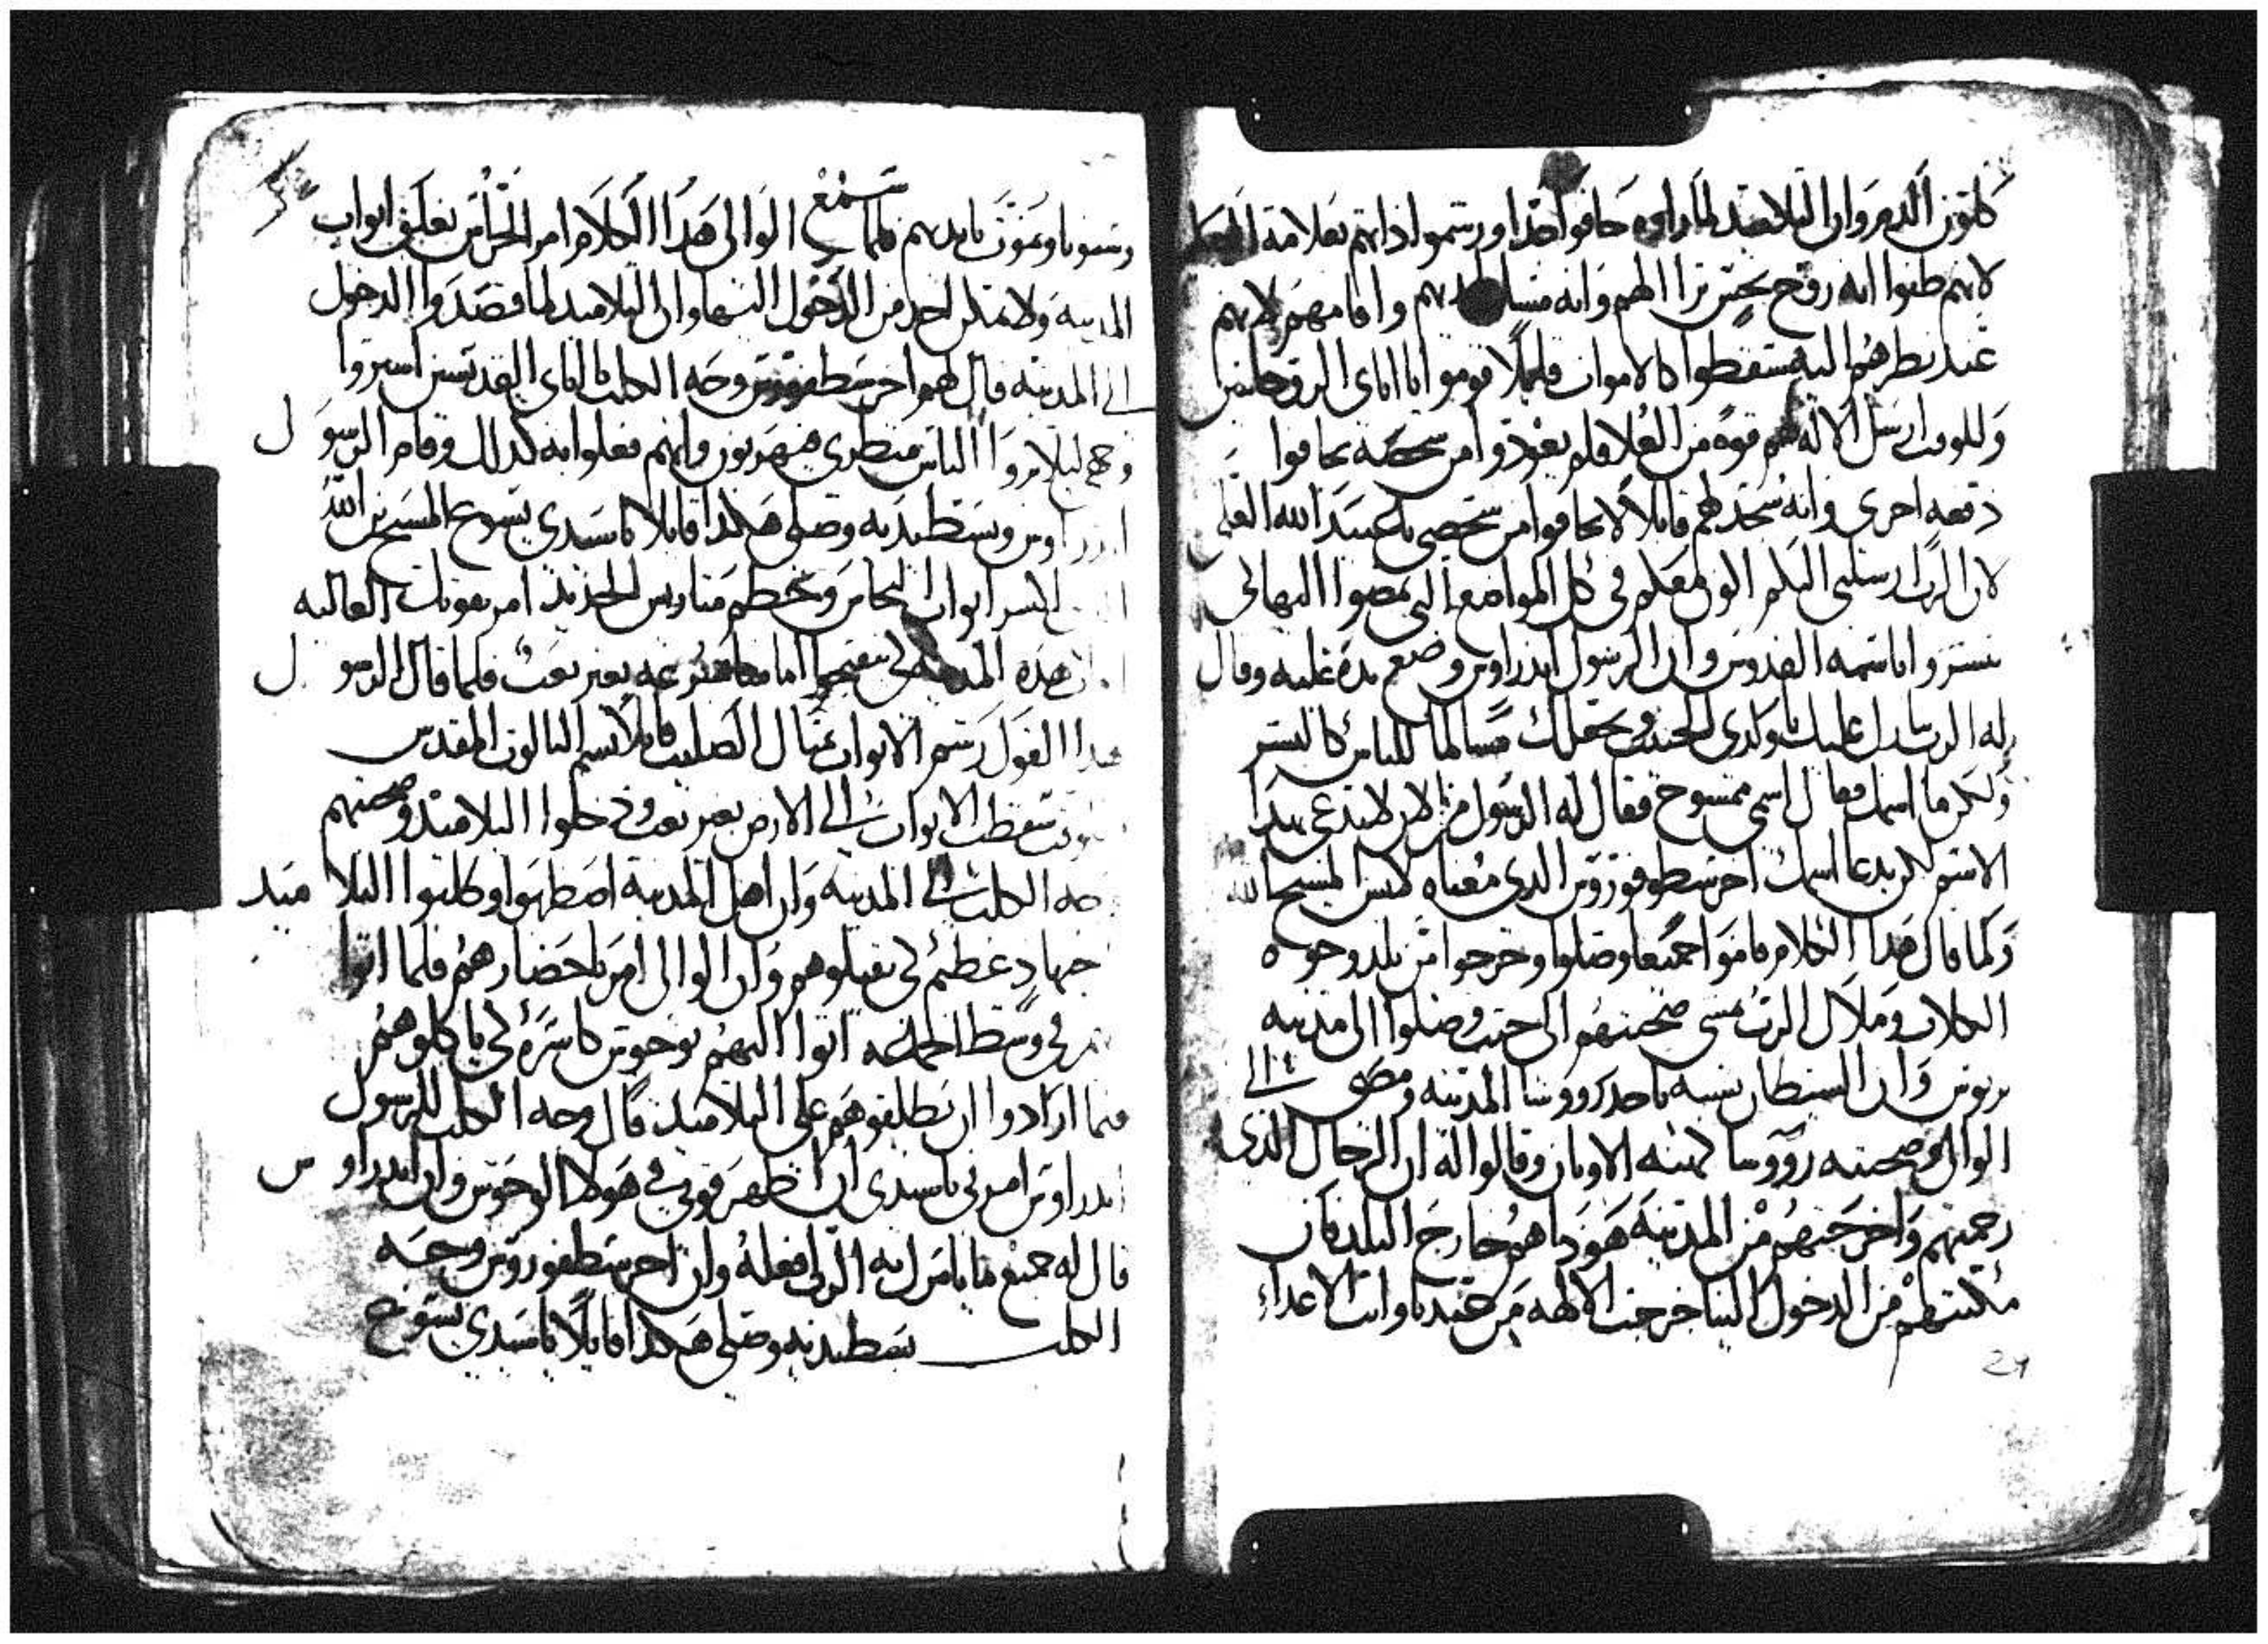 كلون الدم وان التلاميد لما راوه خافوا جدا ورسموا ذاتهم بعلامة
لانهم ظنوا انه روح نجس ترا الهم وانه واقامهم لانهم
عند نظرهم اليه سقطوا كالاموات قايلا قوموا يا اباي الروحانيين
وللوقت ارسل الاله لهم قوة من العلا فلم يعودوا من يخافوا
دفعه اخرى وانه سجد لهم قايلا لا تخافوا من شخصي يا عبيد الله العلي
لان الرب ارسلني اليكم اكون معكم في كل المواضع التي تمضوا اليها لكي
يبشروا باسمه القدوس وان الرسول اندراوس وضع يده عليه وقال
له الرب يبارك عليك يا ولدي الحبيب ويجعلك مسالما للناس كالبشر
ولكن ما اسمك فقال اسمي ممسوح فقال له الرسول من الان لا تدعى بهدا
الاسم لكن يدعا اسمك اخرسطوفوروس الدي معناه لابس المسيح الله
ولما قال هدا الكلام قاموا جميعا وصلوا وخرجوا من بلد وجوه
الكلاب وملاك الرب يمشي صحبتهم الى حيث وصلوا الى مدينه
برتوس وان الشيطان تشبه باحد رووسا المدينه ومضى الى
الوالي وصحبته رووسا كهنه الاوتان وقالوا له ان الرجال الدي
رجمتهم واخرجتهم من المدينه هودا هم خارج البلد فان
مكنتهم من الدخول الينا خرجت الالهه من عندنا واتت الاعداء
29
وسبونا ونموت بايديهم فلما سمع الوالي هدا الكلام امر الحراس بغلق ابواب
المدينه ولا يمكن احد من الدخول اليها وان التلاميد لما قصدوا الدخول
الى المدينه قال لهم اخرسطفوروس وجه الكلب يا اباي القديسين استروا
وجهي ليلا يروا الناس منظري فيهربون وانهم فعلوا به كدلك وقام الرسول
اندراوس وبسط يديه وصلى هكدا قايلا يا سيدي يسوع المسيح بن الله
لكسر ابواب النحاس وتحطم متاريس الحديد امر بقوتك العاليه
هده المدينه لكي تنفتح امامنا بسرعه بغير تعب فلما قال الرسول
هدا القول رشم الابواب بمثال الصليب قايلا بسم الثالوت المقدس
سقطت الابواب الى الارض بغير تعب ودخلوا التلاميد وصحبتهم
وجه الكلب الى المدينه وان اهل المدينه اضطربوا وطلبوا التلاميد
بجهاد عظيم لكي يقتلوهم وان الوالي امر باحضارهم فلما اتوا
بهم في وسط الجماعه اتوا اليهم بوحوش كاسره لكي ياكلوهم
فلما ارادوا ان يطلقوهم على التلاميد قال وجه الكلب للرسول
اندراوس امرني يا سيدي ان اظهر قوتي في هولا الوحوش وان اندراوس
قال له جميع ما يامرك به الرب افعله وان اخرسطفوروس وجه
الكلب بسط يديه وصلى هكدا قايلا يا سيدي يسوع